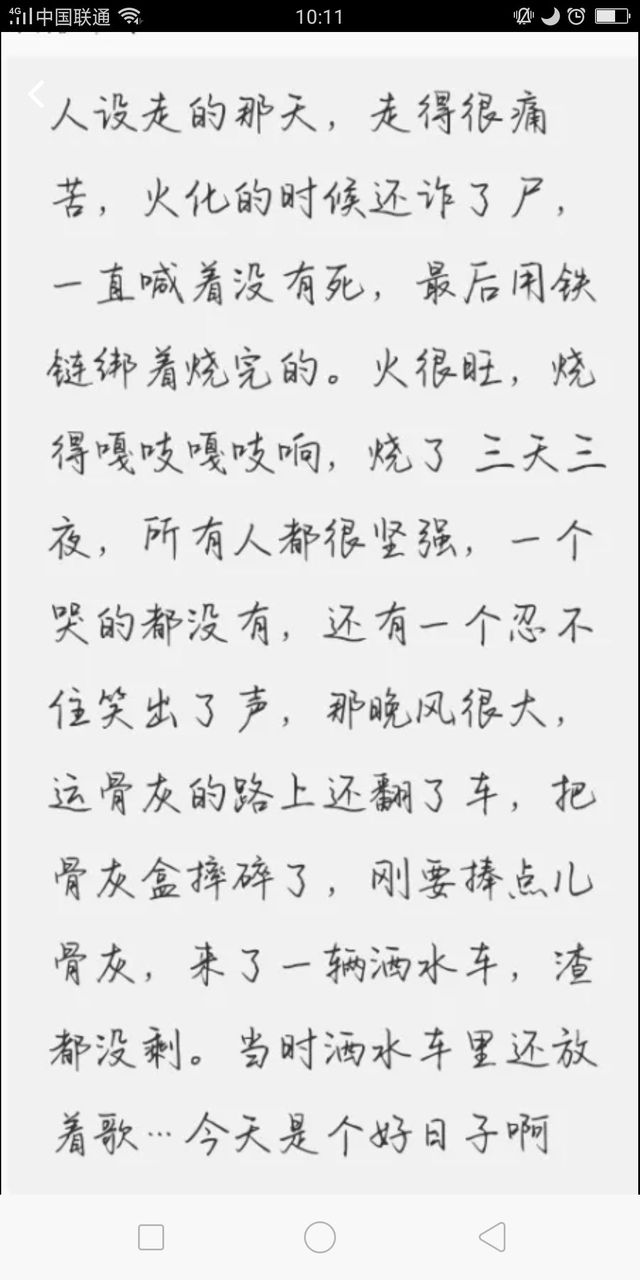 4G 中国联通 10:11
人设走的那天，走得很痛
苦，火化的时候还诈了尸，
一直喊着没有死，最后用铁
链绑着烧完的。火很旺，烧
得嘎吱嘎吱响，烧了三天三
夜，所有人都很坚强，一个
哭的都没有，还有一个忍不
住笑出了声，那晚风很大，
运骨灰的路上还翻了车，把
骨灰盒摔碎了，刚要捧点儿
骨灰，来了一辆洒水车，渣
都没剩。当时洒水车里还放
着歌…今天是个好日子啊